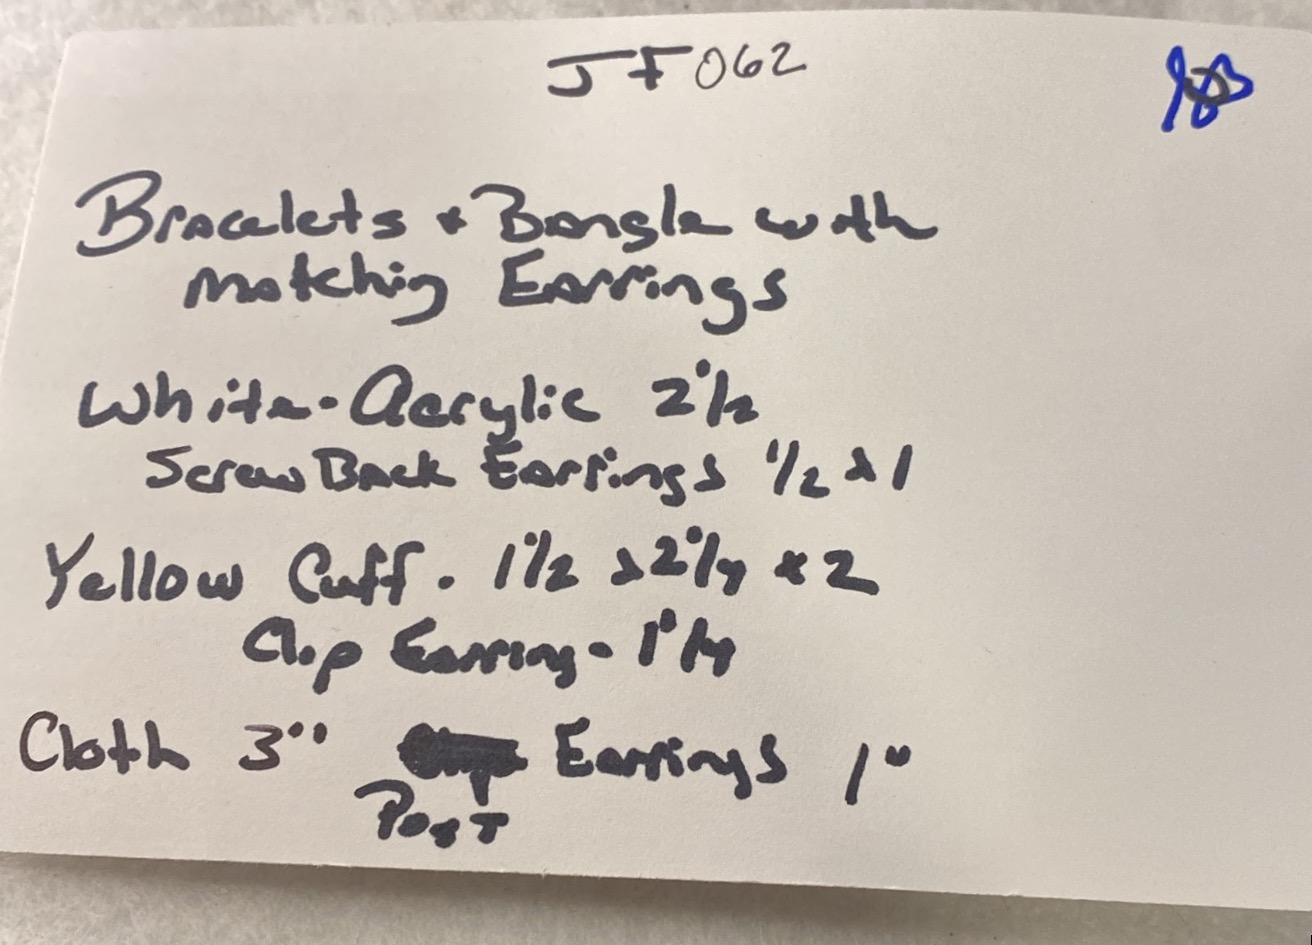 JF062
Bracelets + Bangle with
matching Earrings
White - Acrylic 2 1/2
Screw Back Earrings 1/2 x 1
Yellow Cuff. 1 1/2 x 2 1/4 x 2
Clip Earring - 1 1/4
Cloth 3" Earrings 1"
Post